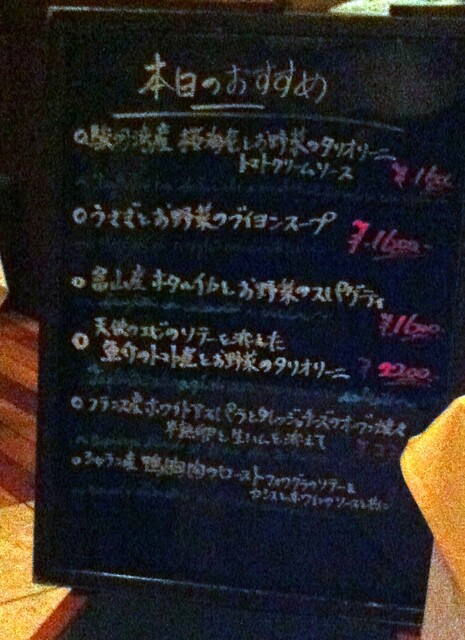 本日のおすすめ
駿河湾産 桜海老とお野菜のタリオリーニ
トマトクリームソース
うさぎとお野菜のブイヨンスープ
¥1600-
富山産 ホタルイカとお野菜のスパゲティ
¥1600-
天使のエビのソテーを添えた
魚介のトマト煮とお野菜のタリオリーニ ¥2200-
フランス産ホワイトアスパラとタレッジョチーズのオーブン焼き
半熟卵と生ハムを添えて
シャラン産 鴨胸肉のロースト フォワグラのソテーと
カシスと赤ワインのソースと共に